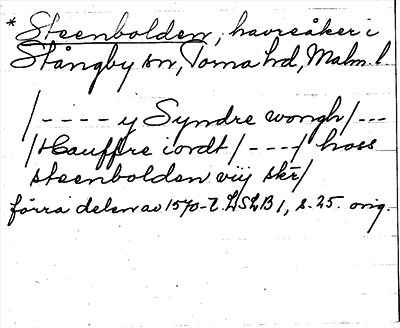 * Steenbolden, havreåker i
Stångby sn, Torna hd, Malm. l
/ - - - - y Syndre wongh / - - -
/ Hauffre iordt / - - - / hoss
steenbolden vij skr /
förra delen av 1570-t. LSLB 1, s. 25. orig.